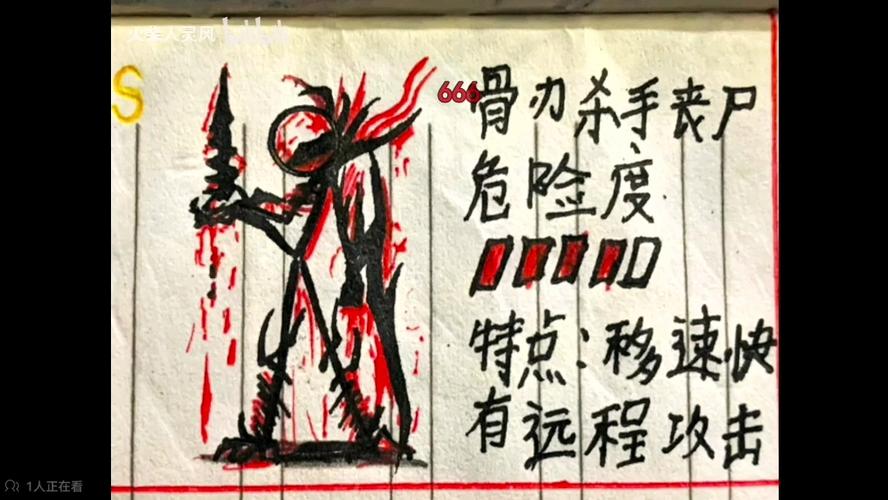 火柴人灵风 bilibili
S
666
骨办杀手丧尸
危险度
特点:移速快
有远程攻击
1人正在看